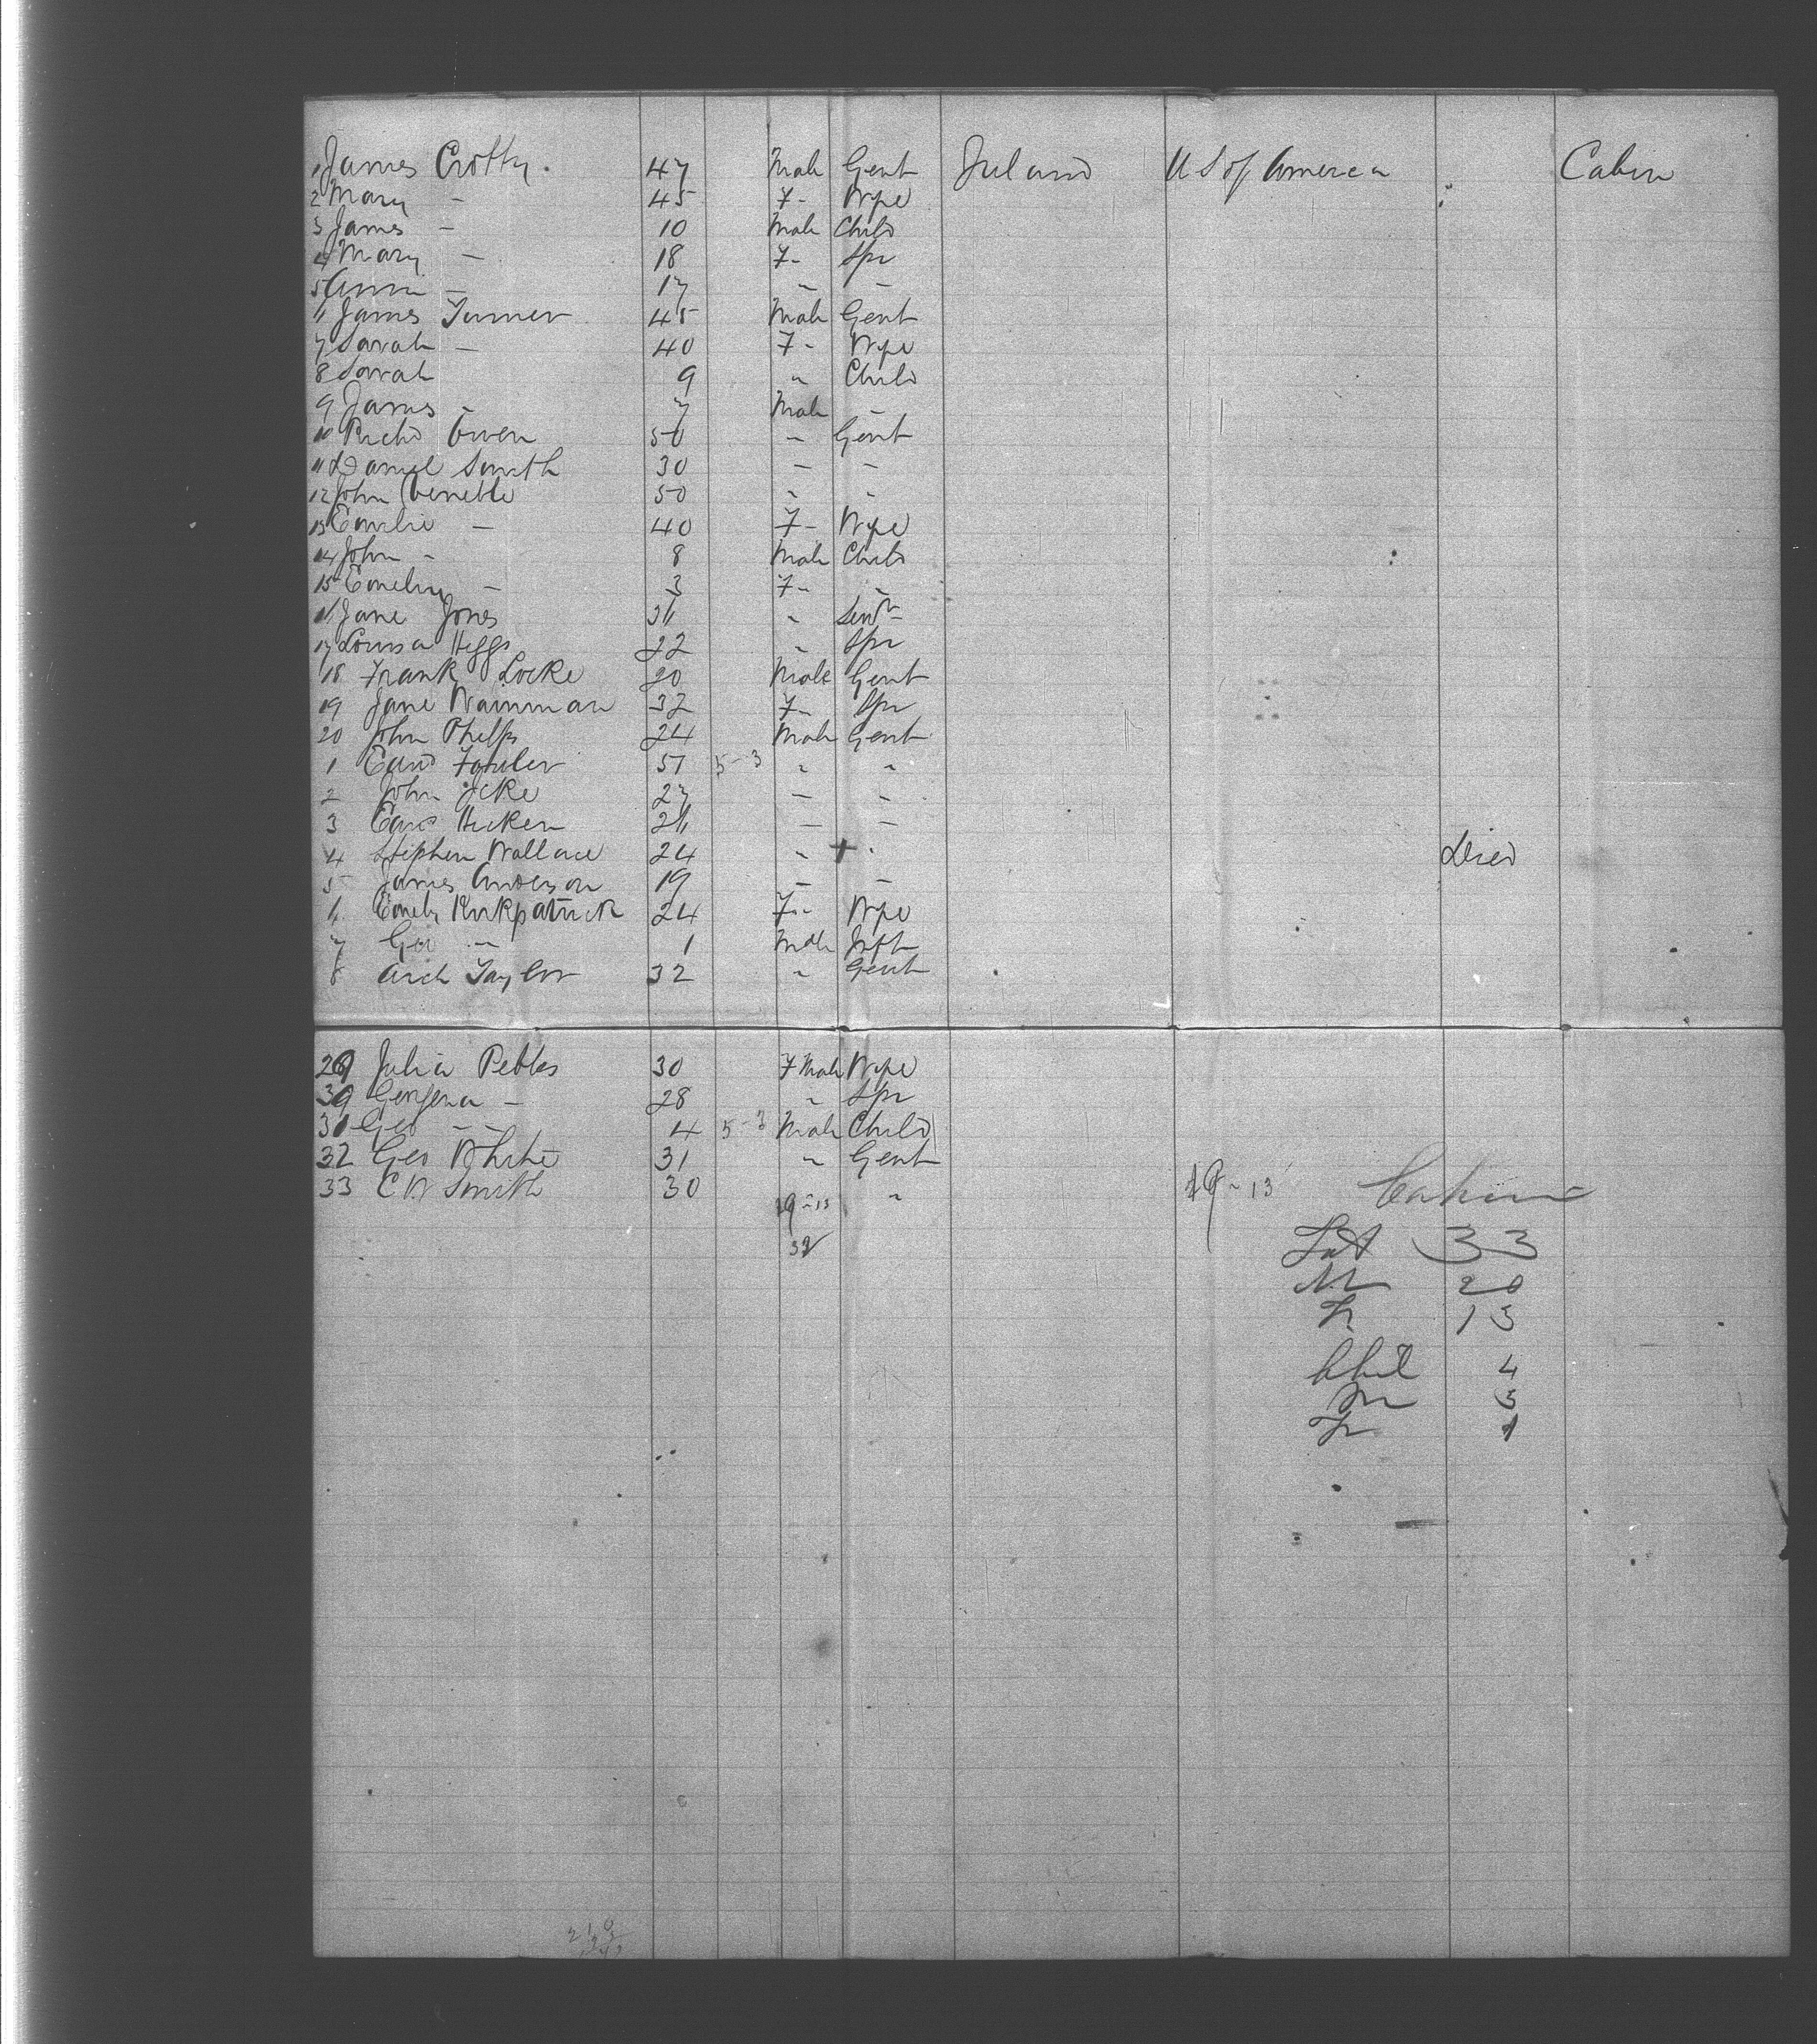 1 James Crotty. 47 Male Gent Ireland U S of America Cabin
2 Mary - 45 F- Wife
3 James - 10 Male Child
4 Mary - 18 F- Spr
5 Annie - 17 " -
6 James Turner 45 Male Gent
7 Sarah - 40 F- Wife
8 Sarah 9 " Child
9 James - 7 Male -
10 Richd Owen 50 " Gent
11 Daniel Smith 30 - -
12 John 50 " "
13 Emilie - 40 F- Wife
14 John - 8 Male Child
15 Emeline - 3 F- -
16 Jane Jones 36 " Servt
17 Louisa Higgs 22 " Spr
18 Frank Locke 20 Male Gent
19 Jane Wainman 32 F- Spr
20 John Phelps 24 Male Gent
1 Edwd Fowler 51 5-3 " "
2 John Icke 27 - -
3 Edwd Hicken 26 - -
4 Stephen Wallace 24 " + " Died
5 James Anderson 19 - -
6 Emely Kirkpatrick 24 F- Wife
7 Geo - 1 Male Inft
8 Arch Taylor 32 " Gent
29 Julia Pebbles 30 F Male Wife
30 Georgena - 28 " Spr
31 Geo - - 4 5-3 Male Child
32 Geo White 31 " Gent
33 C W Smith 30 "
19-13 19-13 Cabin
32 Tot 33
M 20
F 13
Chil 4
M 3
F 1